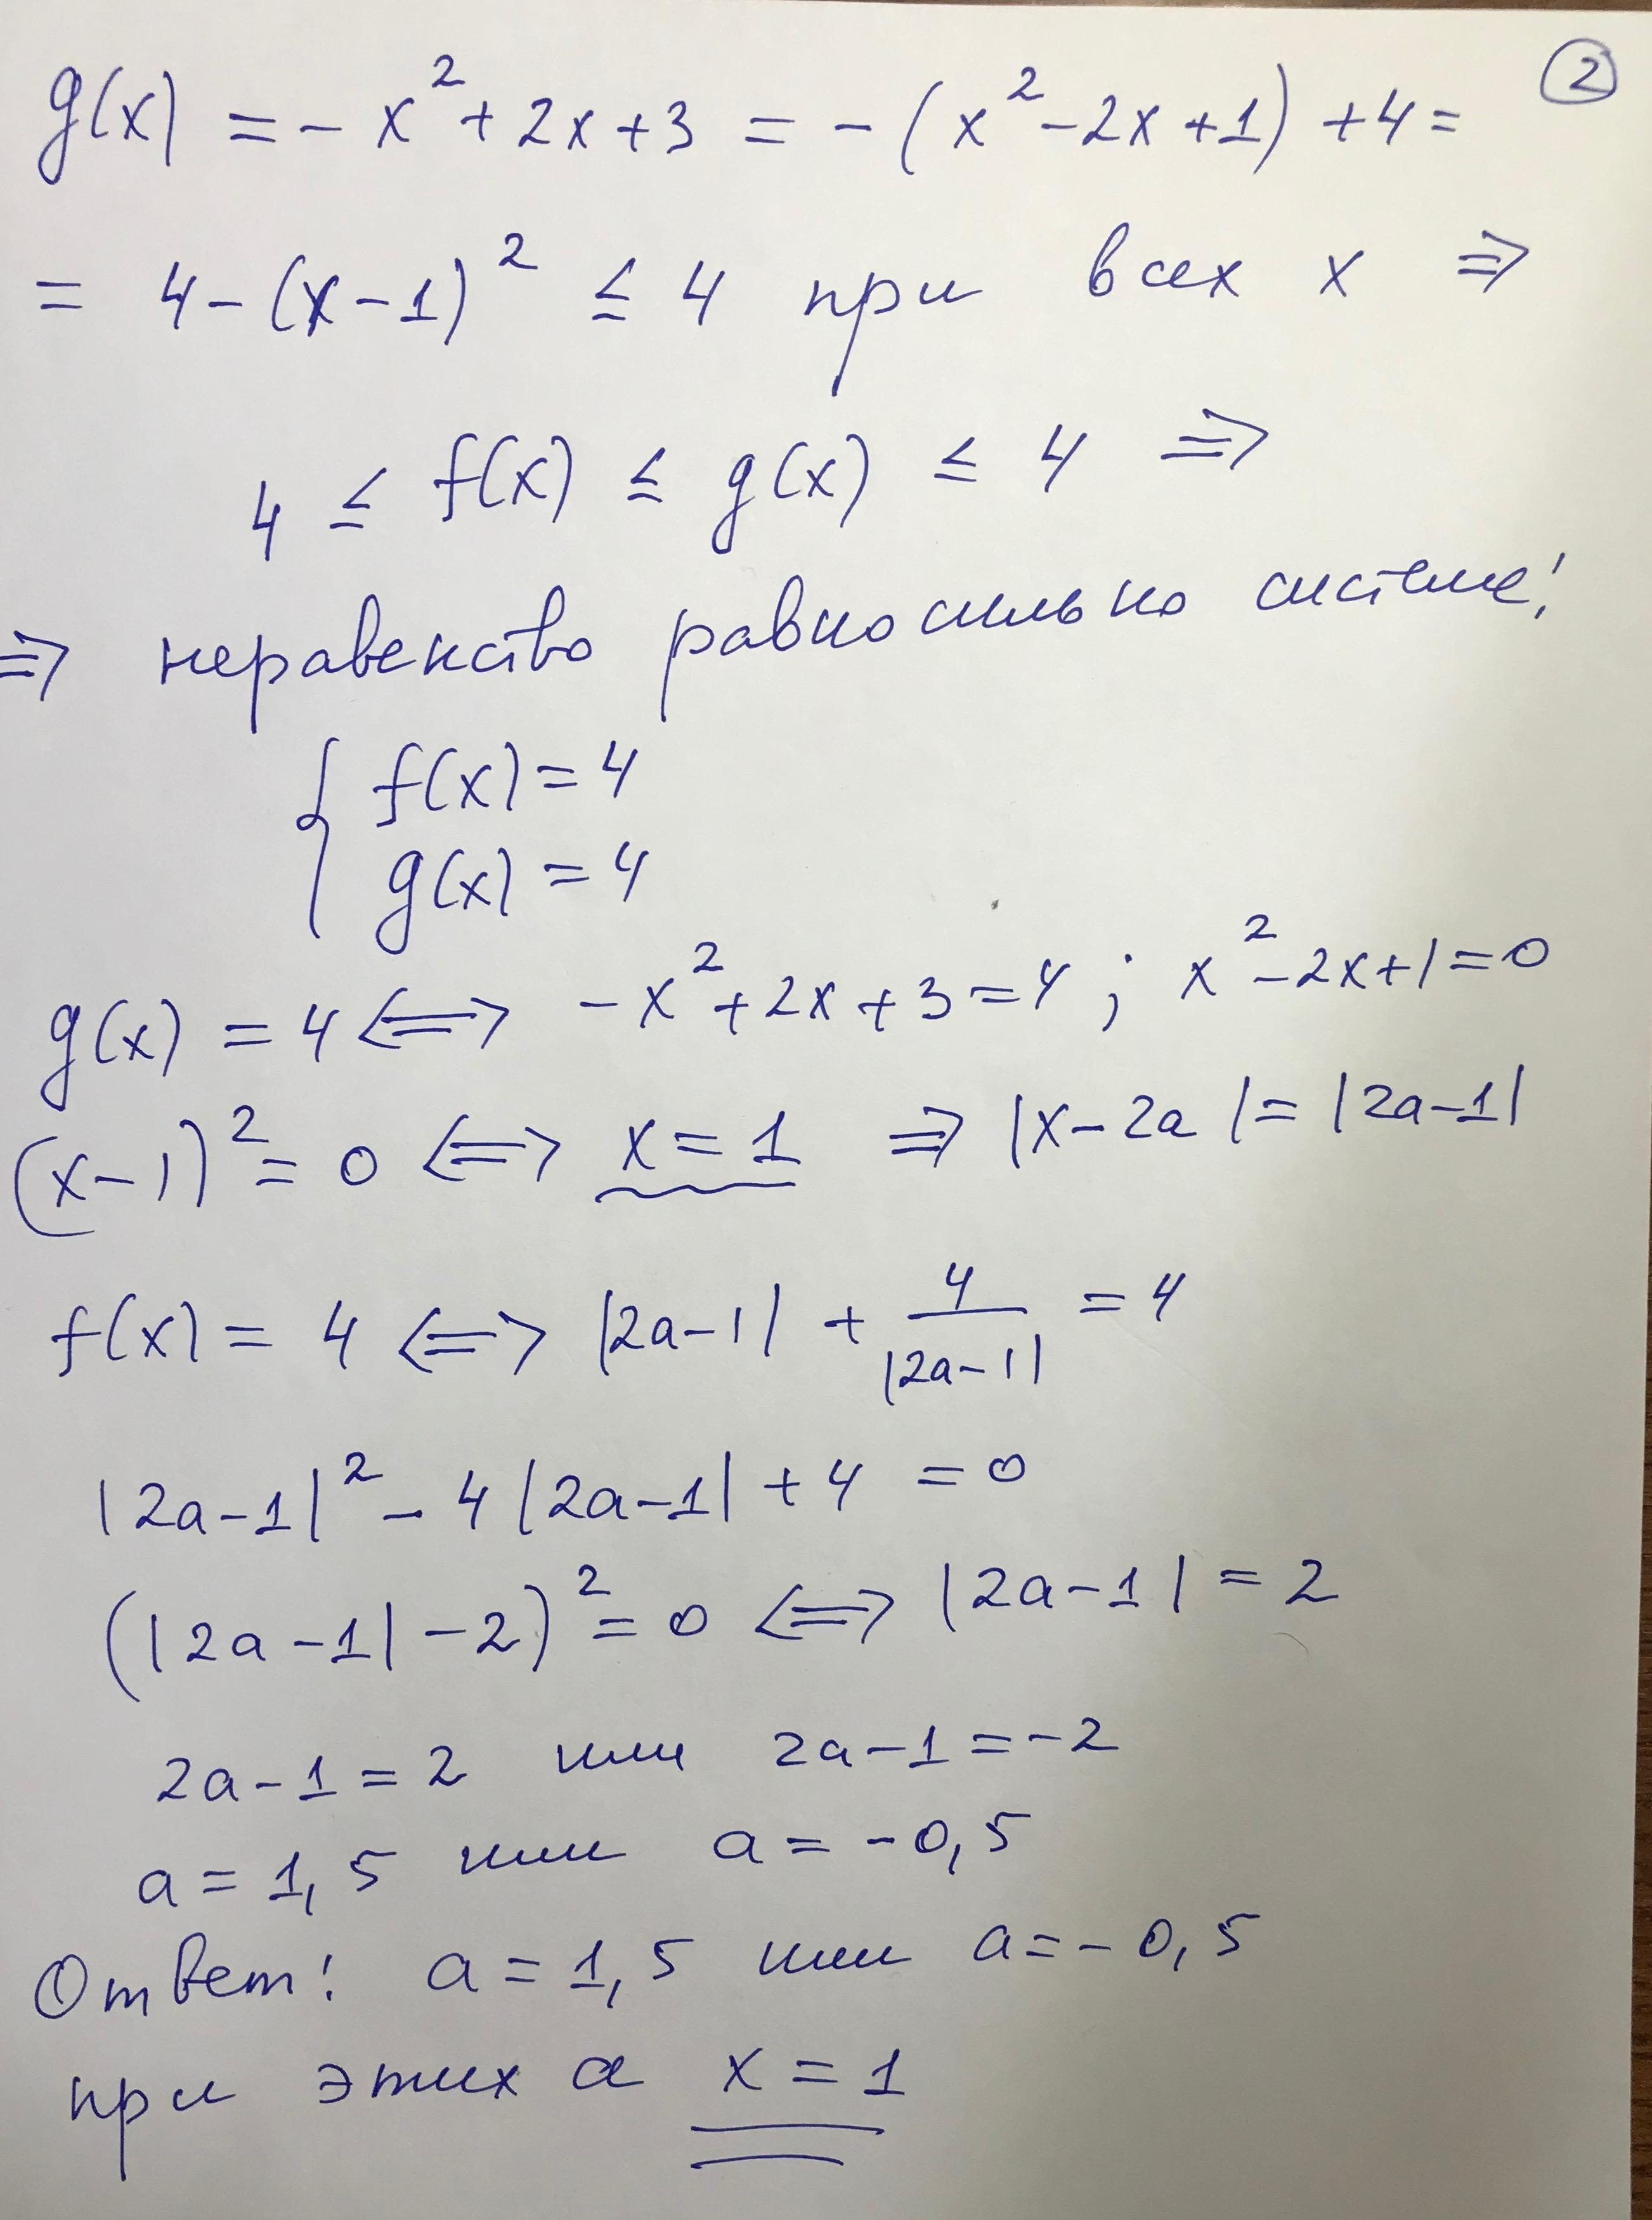 ②
g(x) = - x² + 2x + 3 = - (x² - 2x + 1) + 4 =
= 4 - (x - 1)² ≤ 4 при всех x ⇒
4 ≤ f(x) ≤ g(x) ≤ 4 ⇒
⇒ неравенство равносильно системе:
{ f(x) = 4
g(x) = 4
g(x) = 4 ⟺ - x² + 2x + 3 = 4 ; x² - 2x + 1 = 0
(x - 1)² = 0 ⟺ x = 1 ⇒ |x - 2a| = |2a - 1|
f(x) = 4 ⟺ |2a - 1| + 4/|2a - 1| = 4
|2a - 1|² - 4 |2a - 1| + 4 = 0
(|2a - 1| - 2)² = 0 ⟺ |2a - 1| = 2
2a - 1 = 2 или 2a - 1 = -2
a = 1,5 или a = -0,5
Ответ: a = 1,5 или a = -0,5
при этих a x = 1